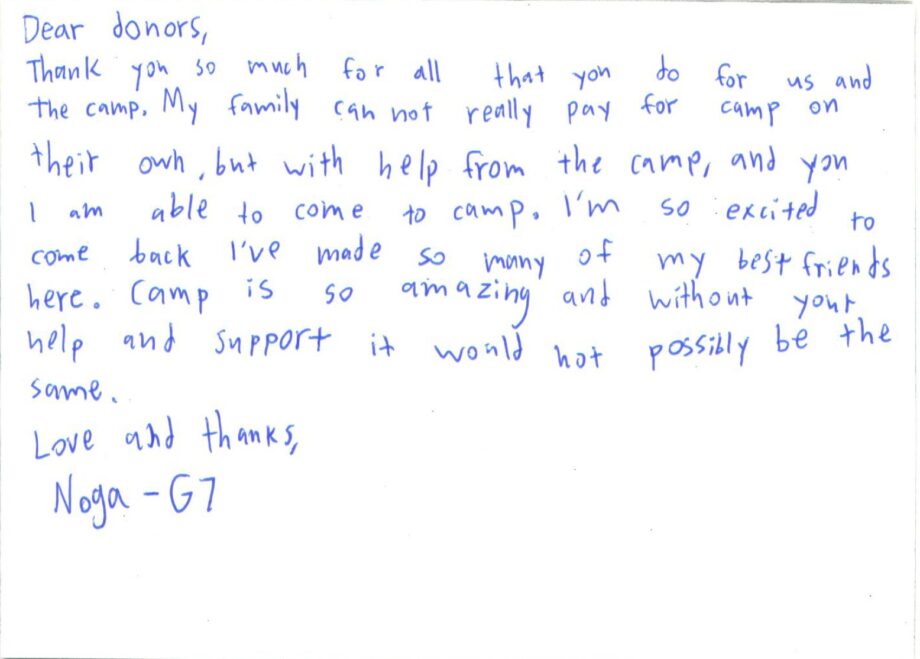 Dear donors,
Thank you so much for all that you do for us and
the camp. My family can not really pay for camp on
their own, but with help from the camp, and you
I am able to come to camp. I'm so excited to
come back I've made so many of my best friends
here. Camp is so amazing and without your
help and support it would not possibly be the
same.
Love and thanks,
Noga - G7